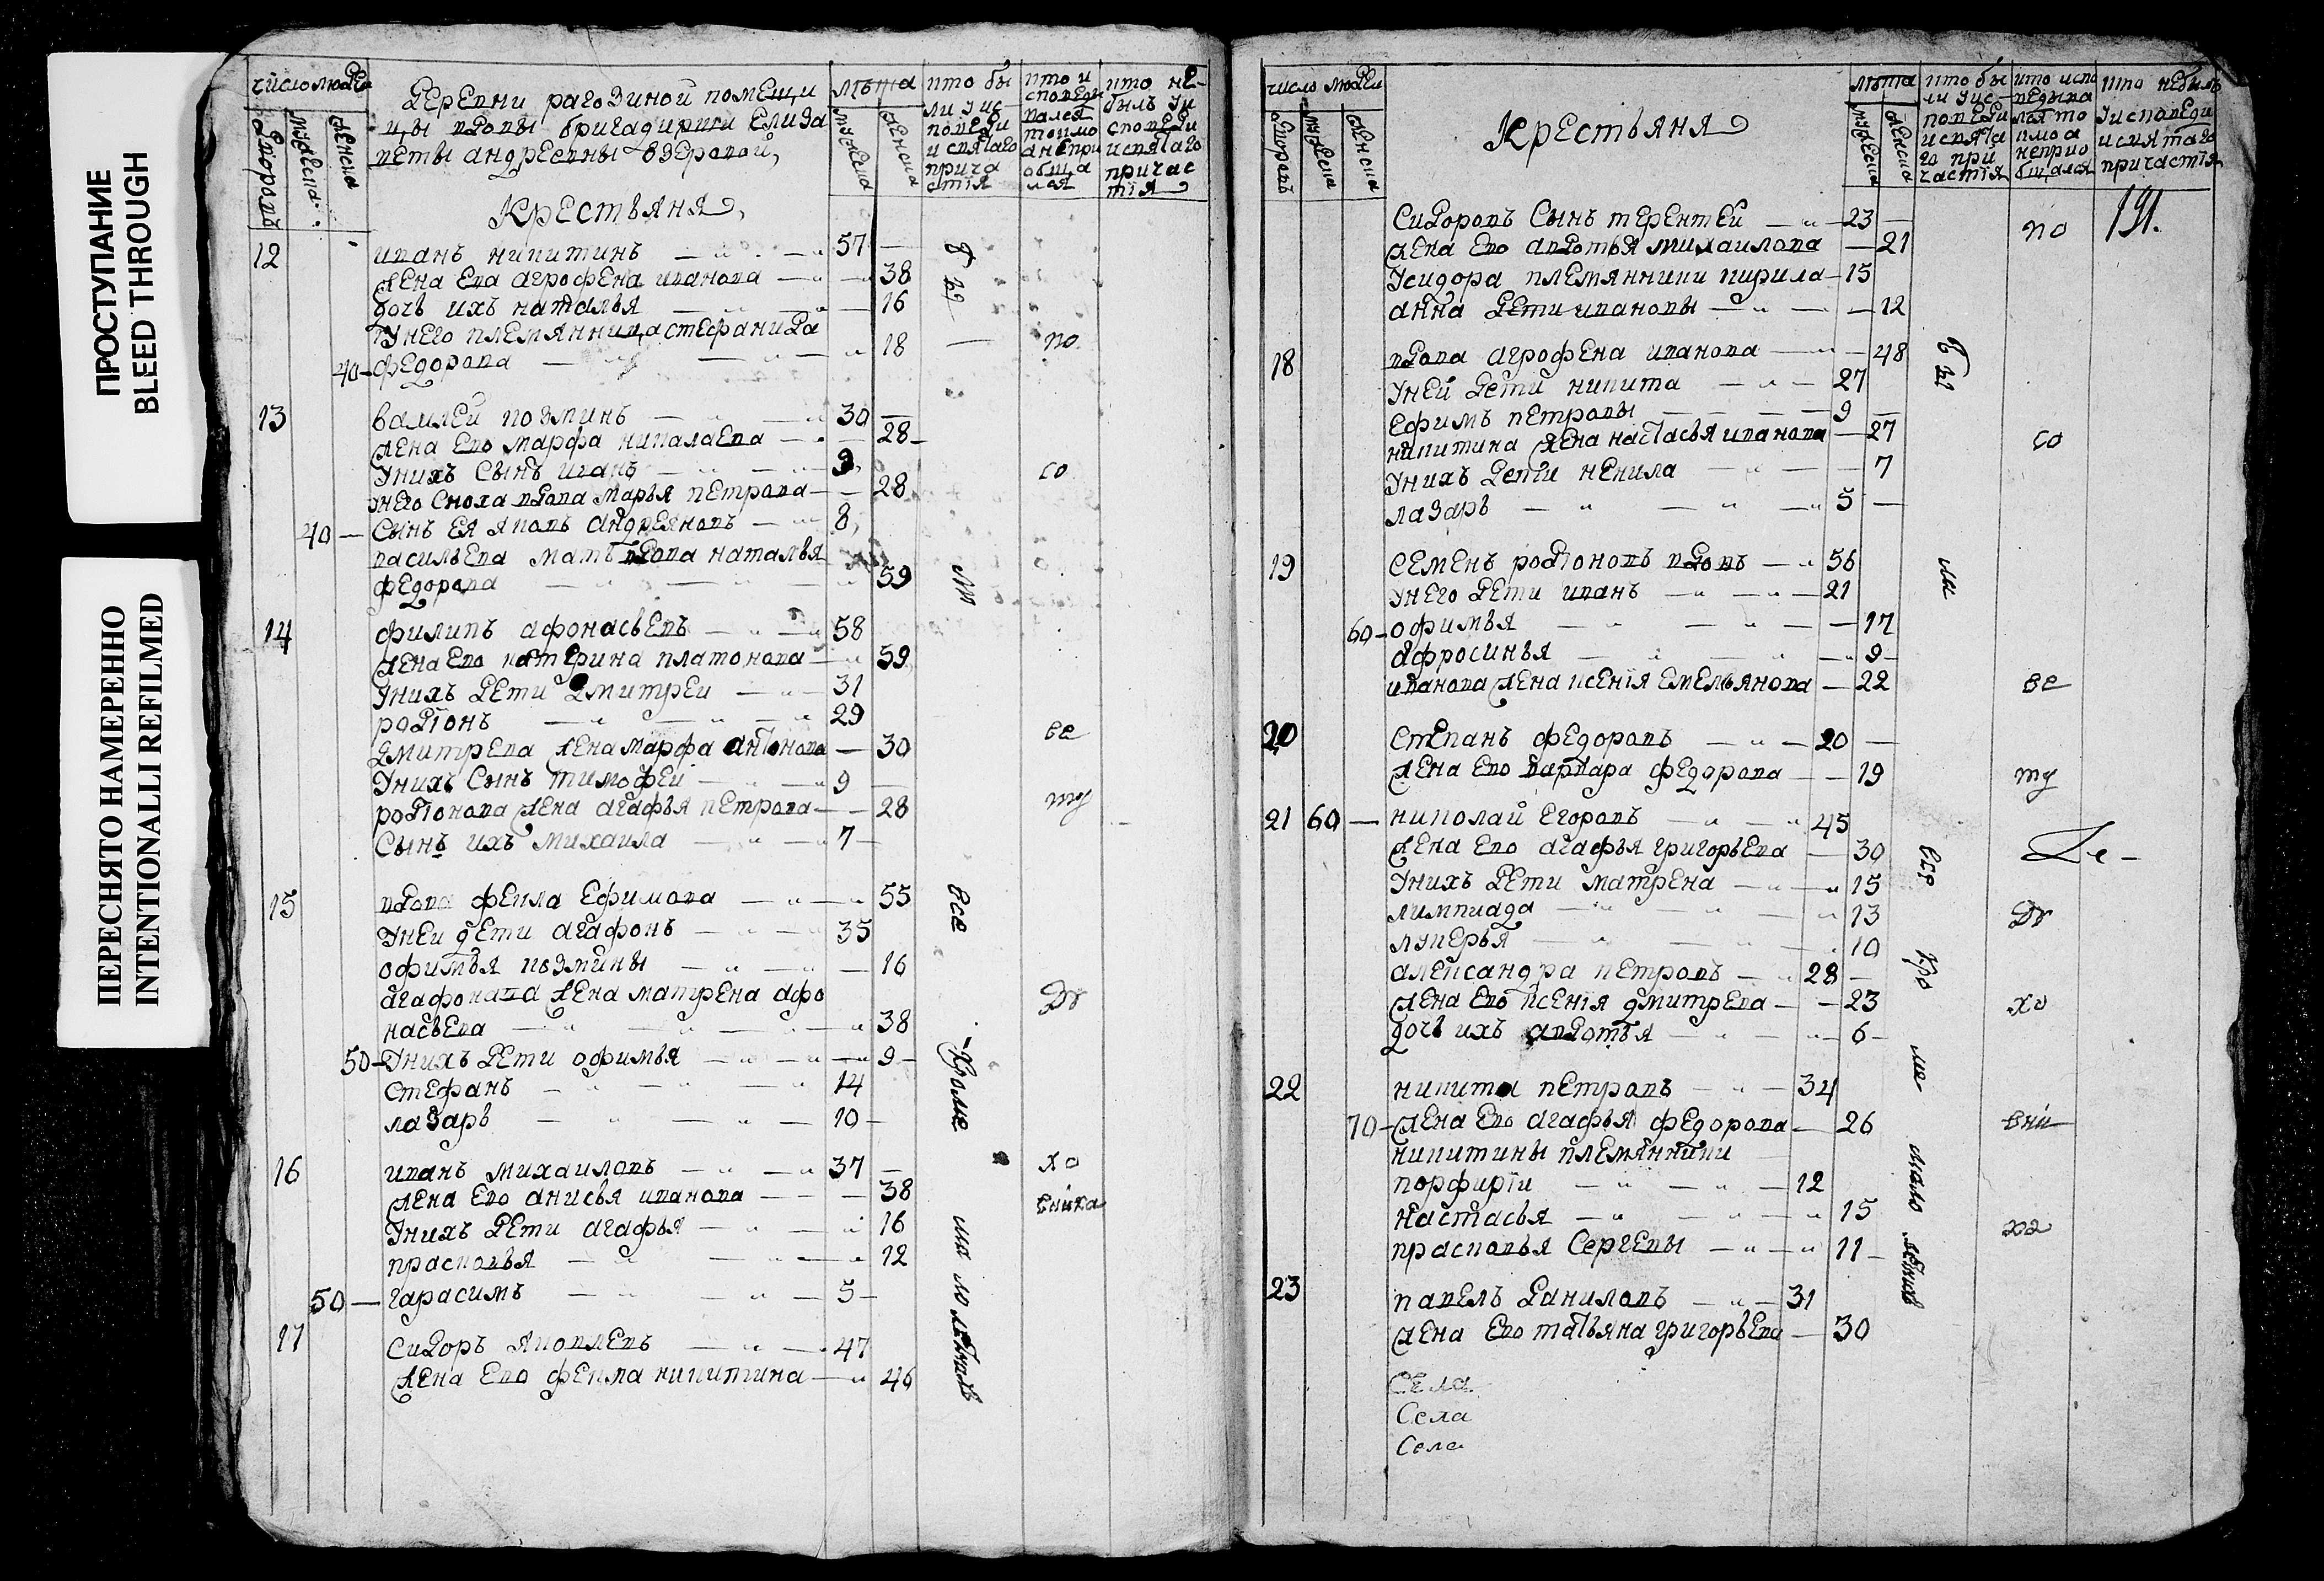 ПРОСТУПАНИЕ
BLEED THROUGH
ПЕРЕСНЯТО НАМЕРЕННО
INTENTIONALLI REFILMED
число людеи
дворовъ
мужеска
женска
деревни рагозиной помещи
цы вдовы бригадирши Елиза
веты андреевны Взеровой
Крестьяня
лѣта
мужеска
женска
кто бы
ли у ис
поведи
и святаго
прича
стїя
кто и
споведи
вался
токмо
а непри
общa
лся
кто не
былъ у и
споведи
и святаго
причас
тїя
12 иванъ никитинъ 57
жена Ево агрофена иванова 38
дочь ихъ наталья 16
У него племянница стефанида
40 федорова 18
13 василей козминъ 30
жена Ево марфа николаева 28
У нихъ Сынъ иванъ 3
У него Сноха вдова марья петрова 28
40 Сынъ ея яковъ андреяновъ 8
васильева мать вдова наталья
федорова 59
14 филипъ афонасьевъ 58
жена Ево катерина платонова 59
У нихъ дети дмитреи 31
родїонъ 29
дмитрева жена марфа антонова 30
У нихъ Сынъ тимофеи 9
родїонова жена агафья петрова 28
Сынъ ихъ михаила 7
15 вдова фекла Ефимова 55
У неи дети агафонъ 35
офимья козмины 16
агафонава жена матрена афо
насьева 38
50 У нихъ дети офимья 9
Стефанъ 14
лазарь 10
16 иванъ михаиловъ 37
жена Ево анисья иванова 38
У нихъ дети агафья 16
прасковья 12
50 гарасимъ 5
17 Сидоръ яковлевъ 47
жена Ево фекла никитина 46
бы
ли
все
Кроме
ма ло лѣтныхъ
по
со
ве
ту
Ду
хо
вника
число людеи
дворовъ
мужеска
женска
Крестьяня
лѣта
мужеска
женска
кто бы
ли у ис
поведи
и свята
го при
частїя
кто испо
ведыва
лся то
кмо а
неприо
бщался
кто небылъ
у исповеди
и святаго
причастїя
191.
Сидоровъ Сынъ терентей 23
жена Ево авдотья михаилова 21
У сидора племянники кирила 15
анна дети ивановы 12
18 вдова агрофена иванова 48
У ней дети никита 27
Ефимъ петровы 9
никитина жена настасья иванова 27
У нихъ дети ненила 7
лазарь 5
19 Семенъ родїоновъ вдовъ 56
У него дети иванъ 21
60 офимья 17
афросинья 9
иванова жена ксенїя Емельянова 22
20 Степанъ федоровъ 20
жена Ево варвара федорова 19
21 60 николай Егоровъ 45
жена Ево агафья григорьева 30
У нихъ дети матрена 15
лимпиада 13
лукерья 10
александра петровъ 28
жена Ево ксенїя дмитрева 23
дочь ихъ авдотья 6
22 никита петровъ 34
70 жена Ево агафья федорова 26
никитины племянники
порфирїи 12
настасья 15
прасковья Сергевы 11
23 павелъ даниловъ 31
жена Ево татьяна григорьева 30
Села
Села
Села
бы
ли
все
Кро
ме
мало лѣтныхъ
по
со
ве
ту
Ду
хо
вни
ка